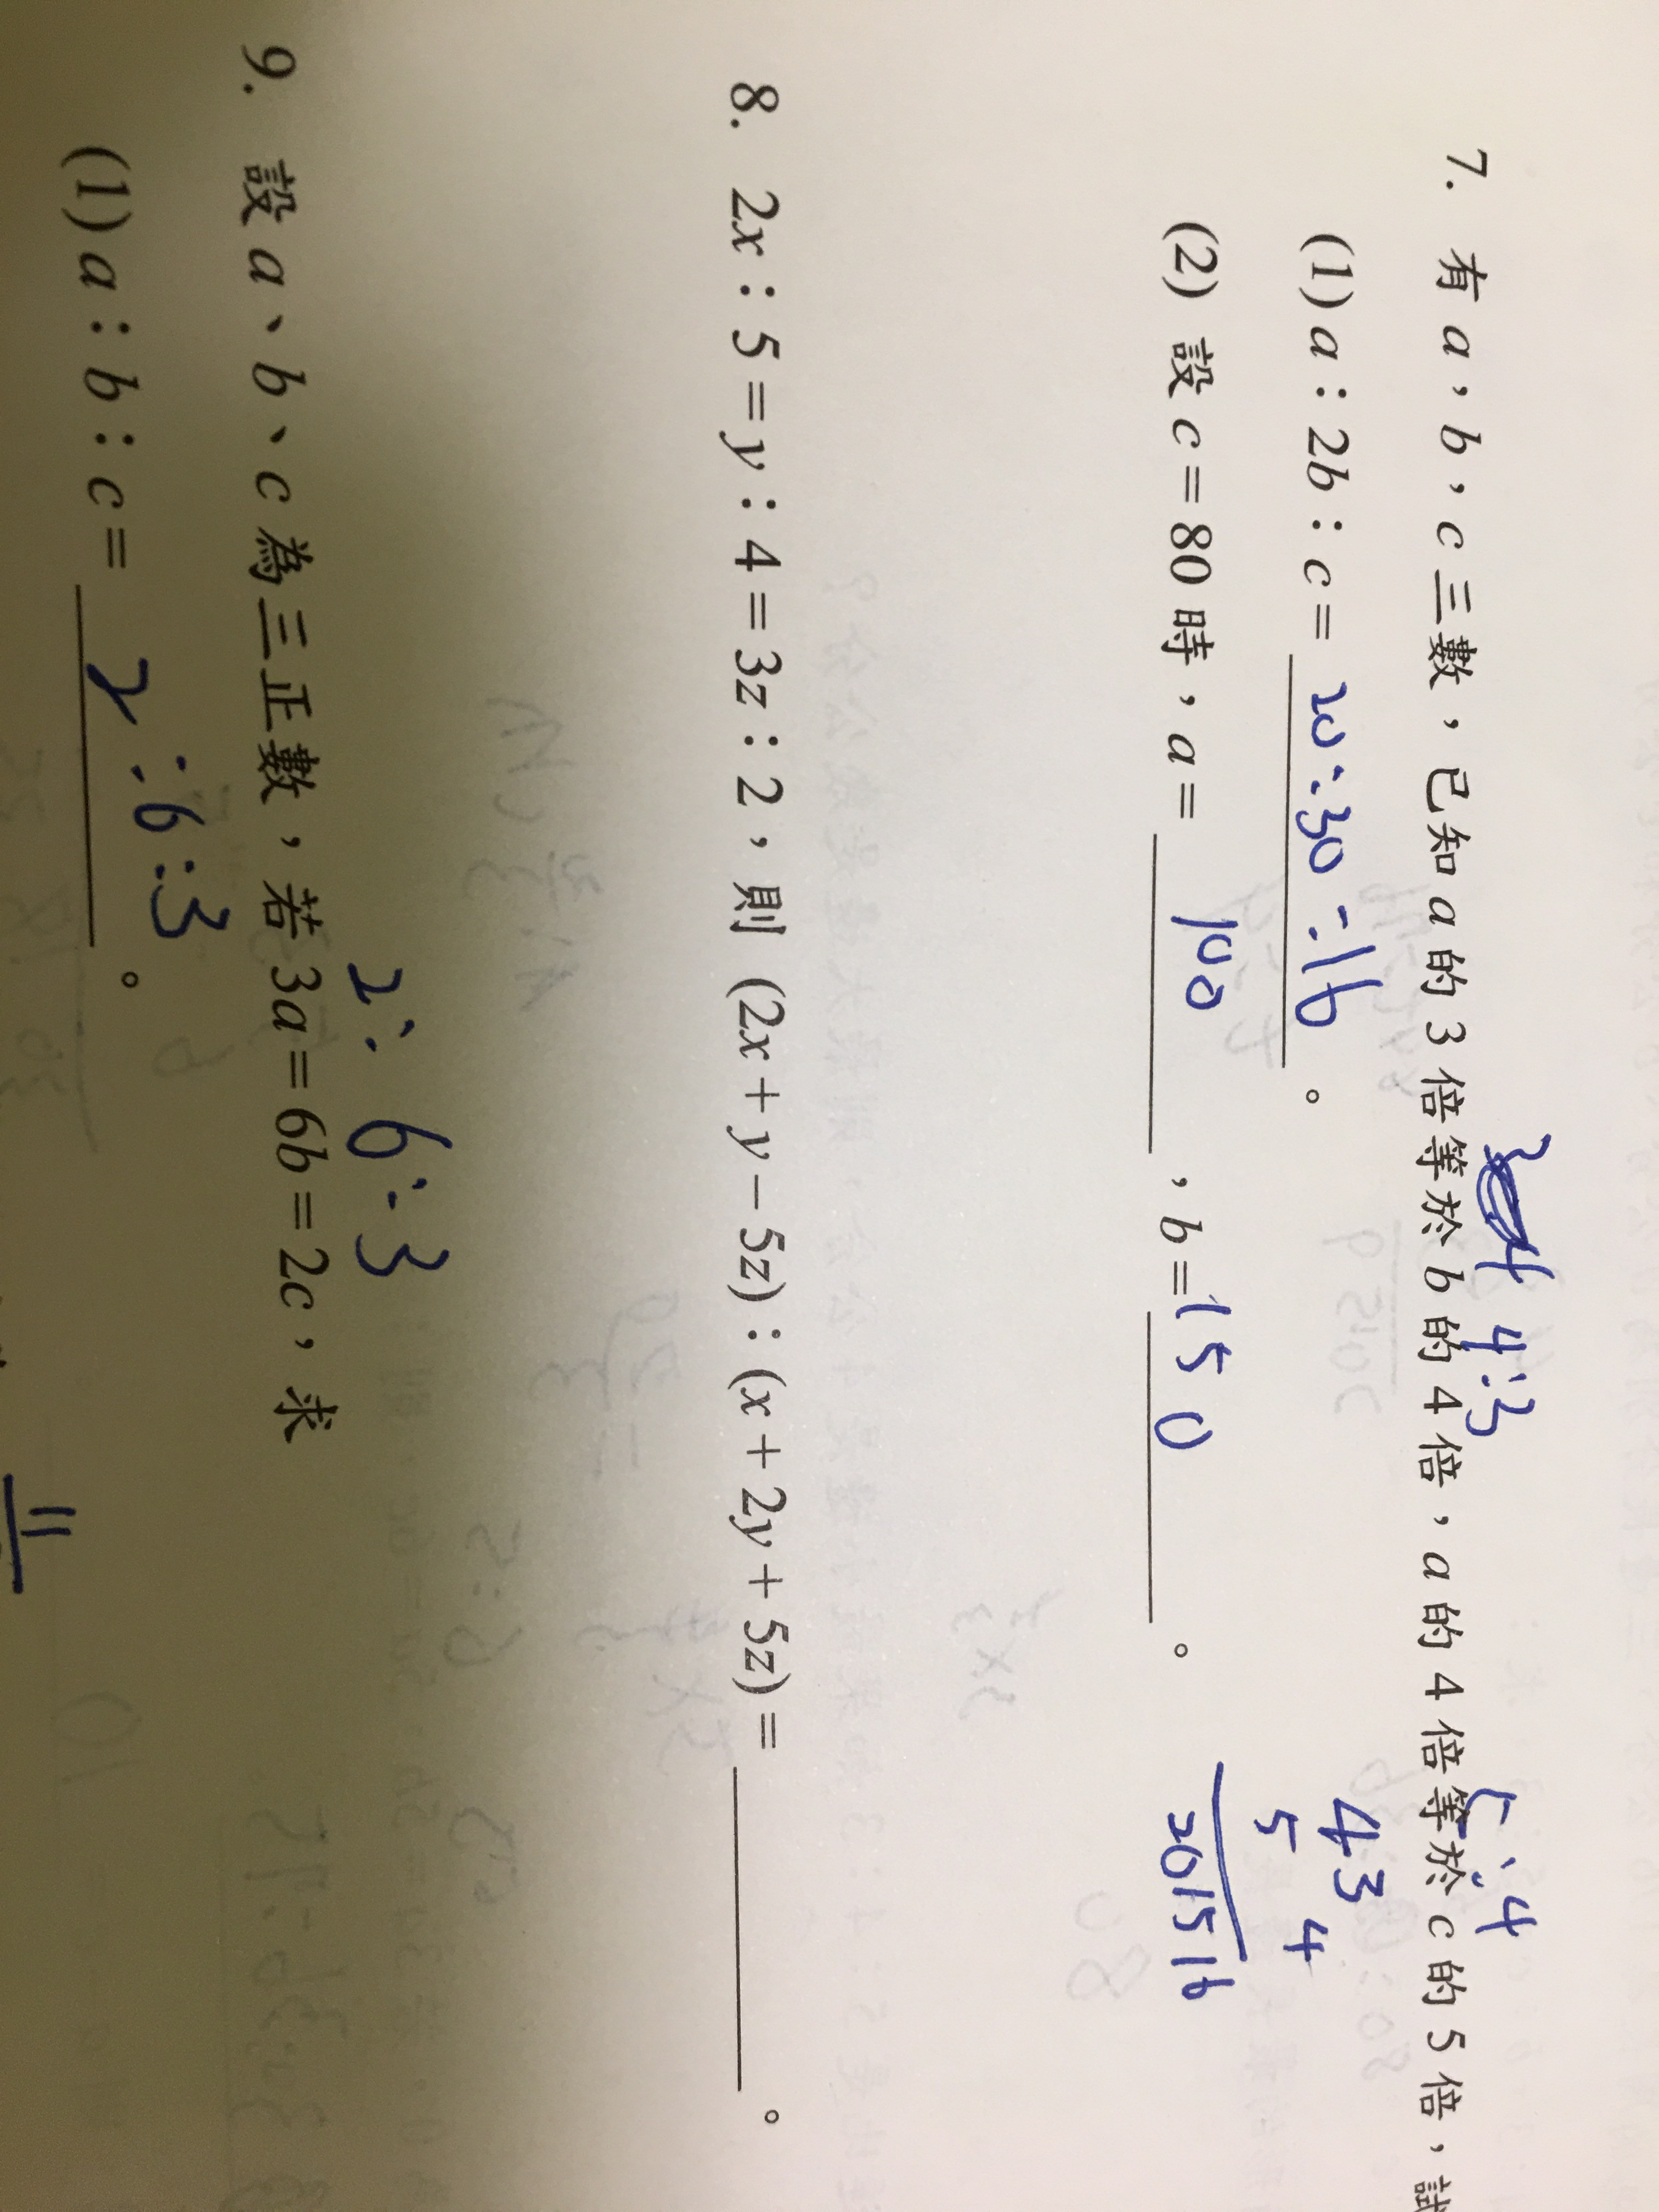 3 4 4:3 5:4
7. 有 a，b，c 三數，已知 a 的 3 倍等於 b 的 4 倍，a 的 4 倍等於 c 的 5 倍，試
(1) a：2b：c＝20:30:16。
4 3
5 4
20 15 16
(2) 設 c＝80 時，a＝100，b＝150。
8. 2x：5＝y：4＝3z：2，則 (2x＋y－5z)：(x＋2y＋5z)＝＿＿＿。
2:6:3
9. 設 a、b、c 為三正數，若 3a＝6b＝2c，求
(1) a：b：c＝2:6:3。
11